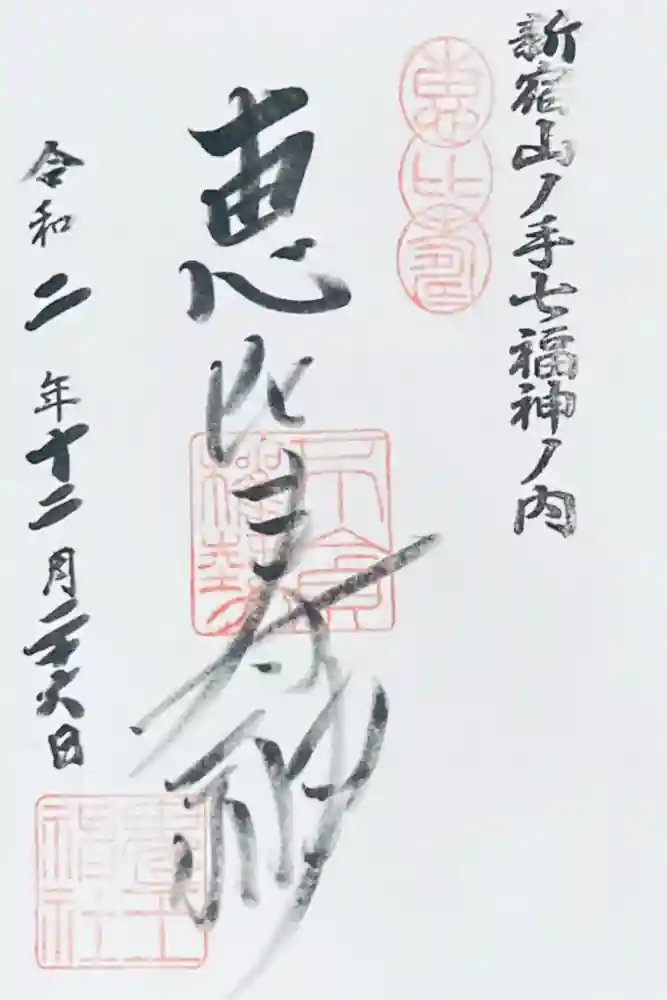 新宿山ノ手七福神ノ内
恵比寿
恵比寿神
令和二年十二月二十六日
鬼王
神社